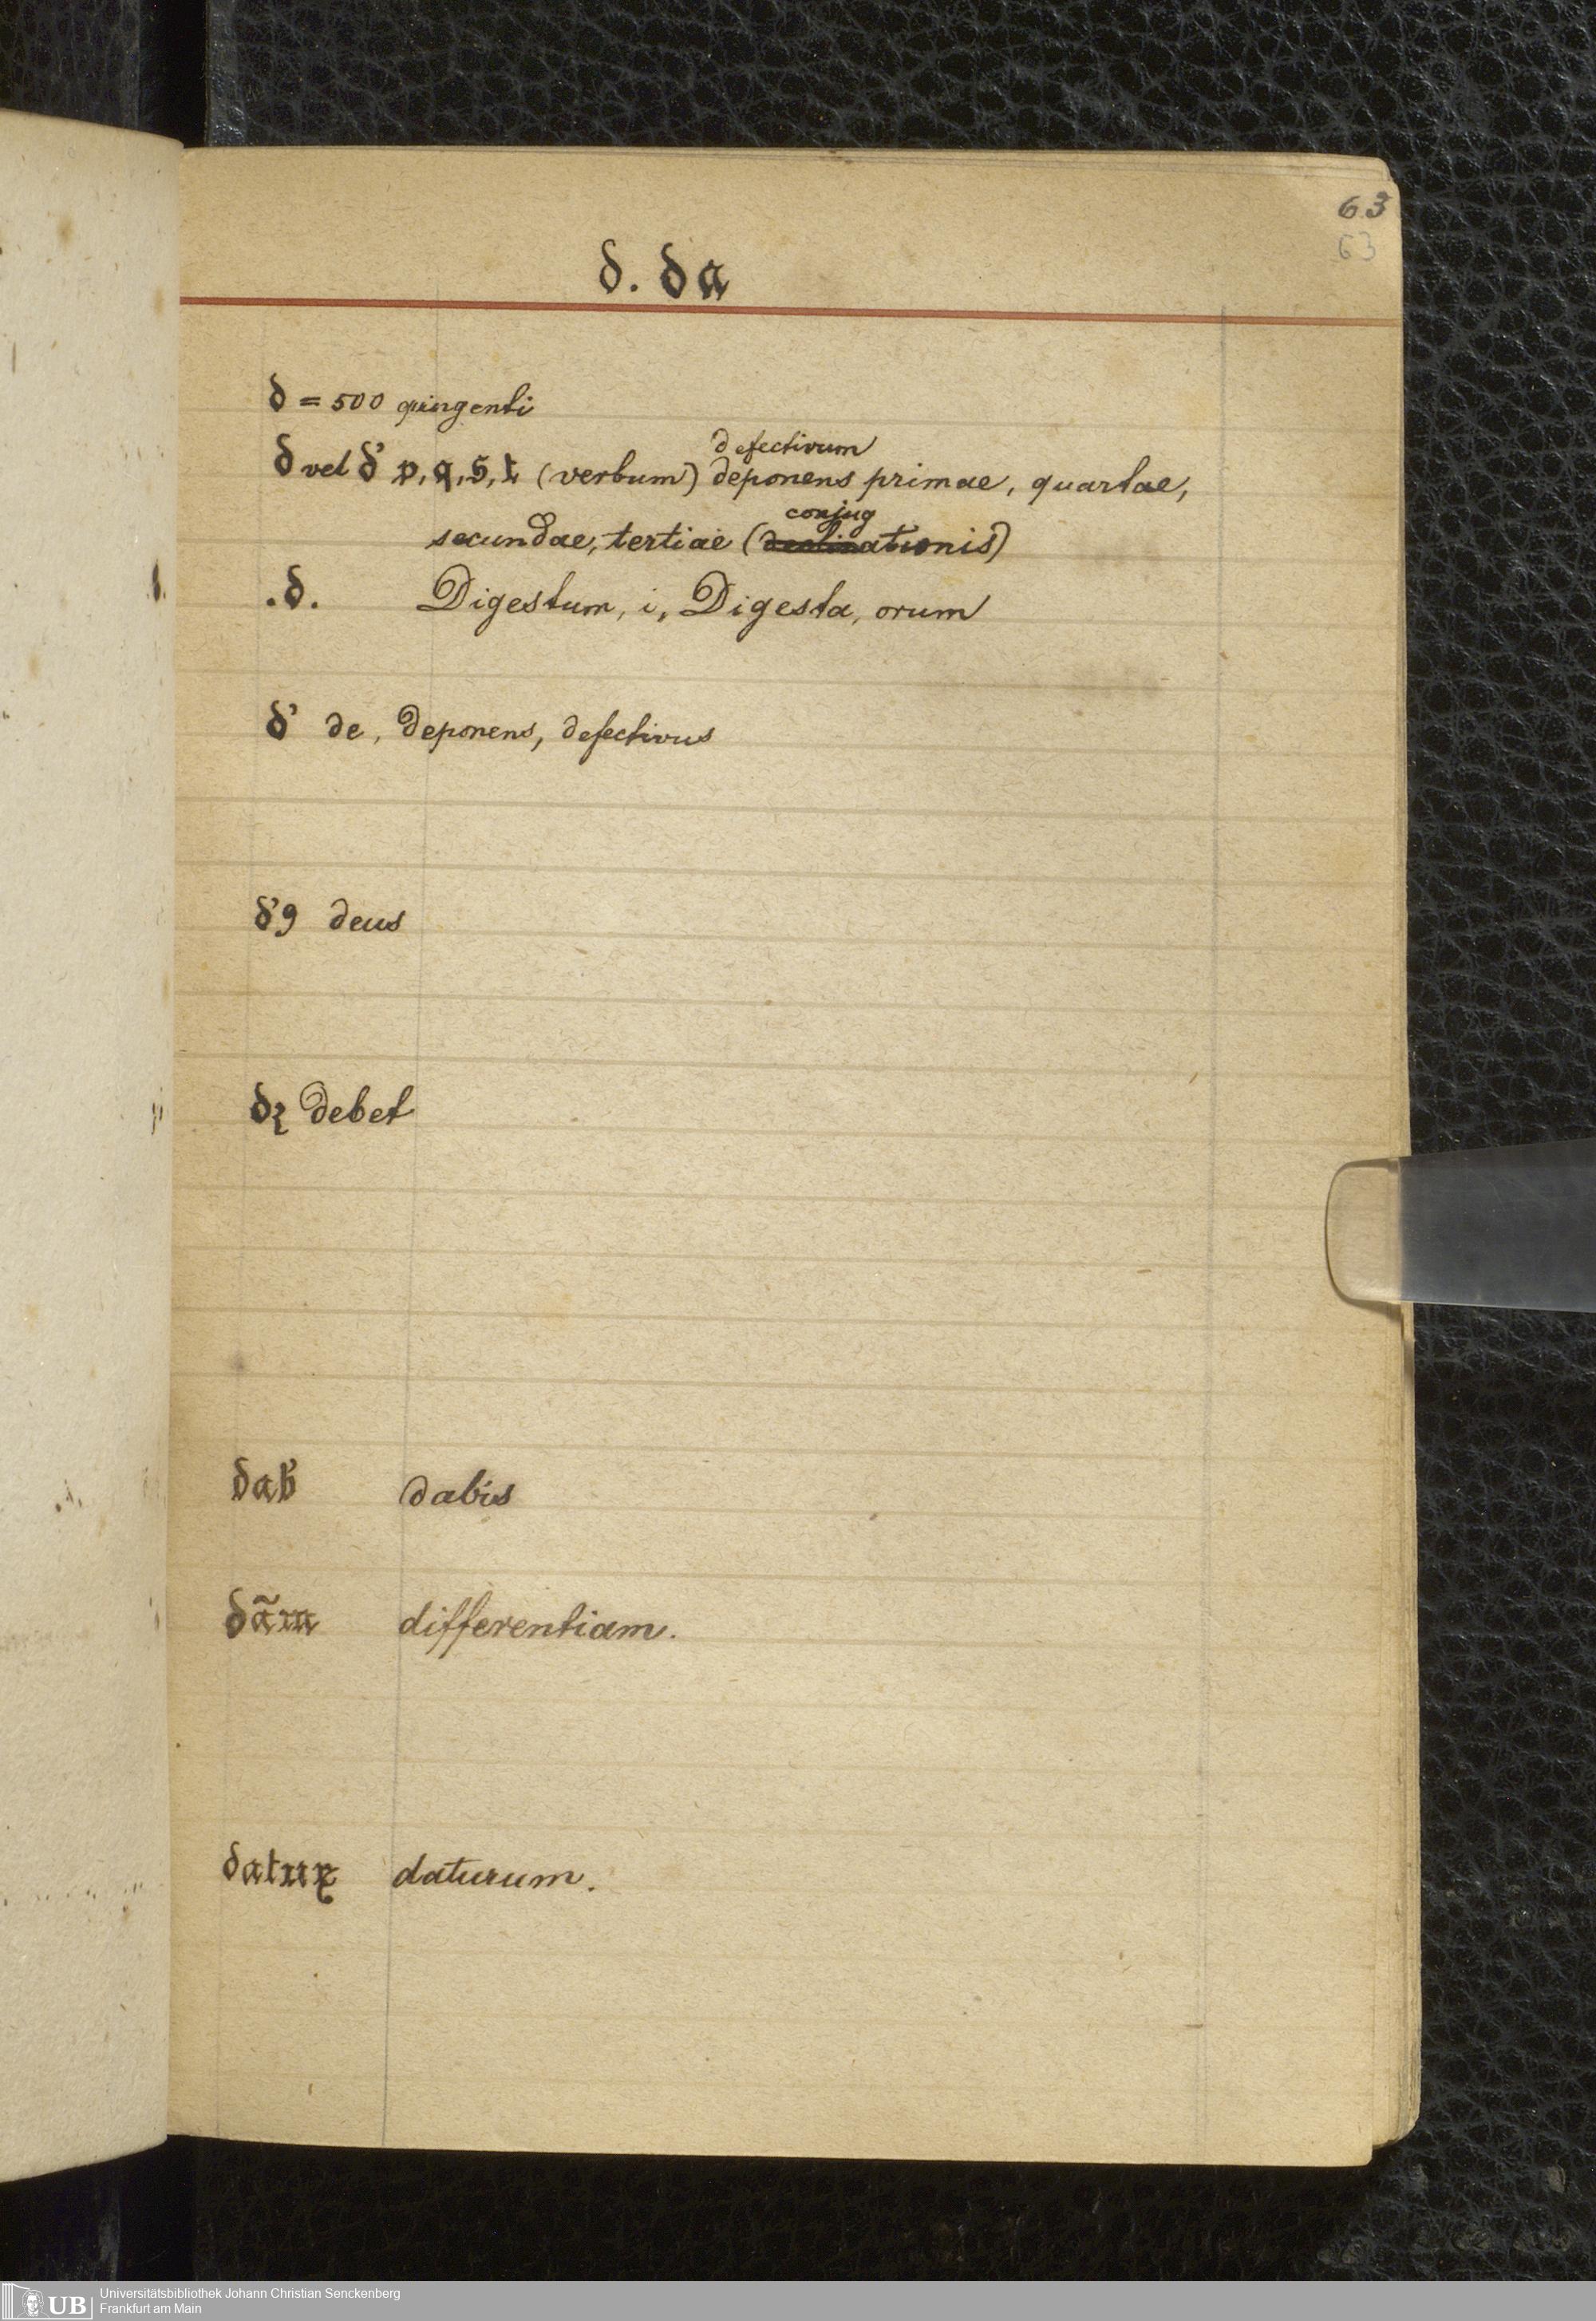 63
63
d. da
d = 500 quingenti
defectivum
d vel d' p, q, s, t (verbum) deponens primae, quartae,
conjug
secundae, tertiae (declinationis)
.d. Digestum, i, Digesta, orum
d' de, deponens, defectivus
d'9 deus
dꝫ debet
dab' dabis
dãm differentiam.
datuꝝ daturum.
UB Universitätsbibliothek Johann Christian Senckenberg
Frankfurt am Main